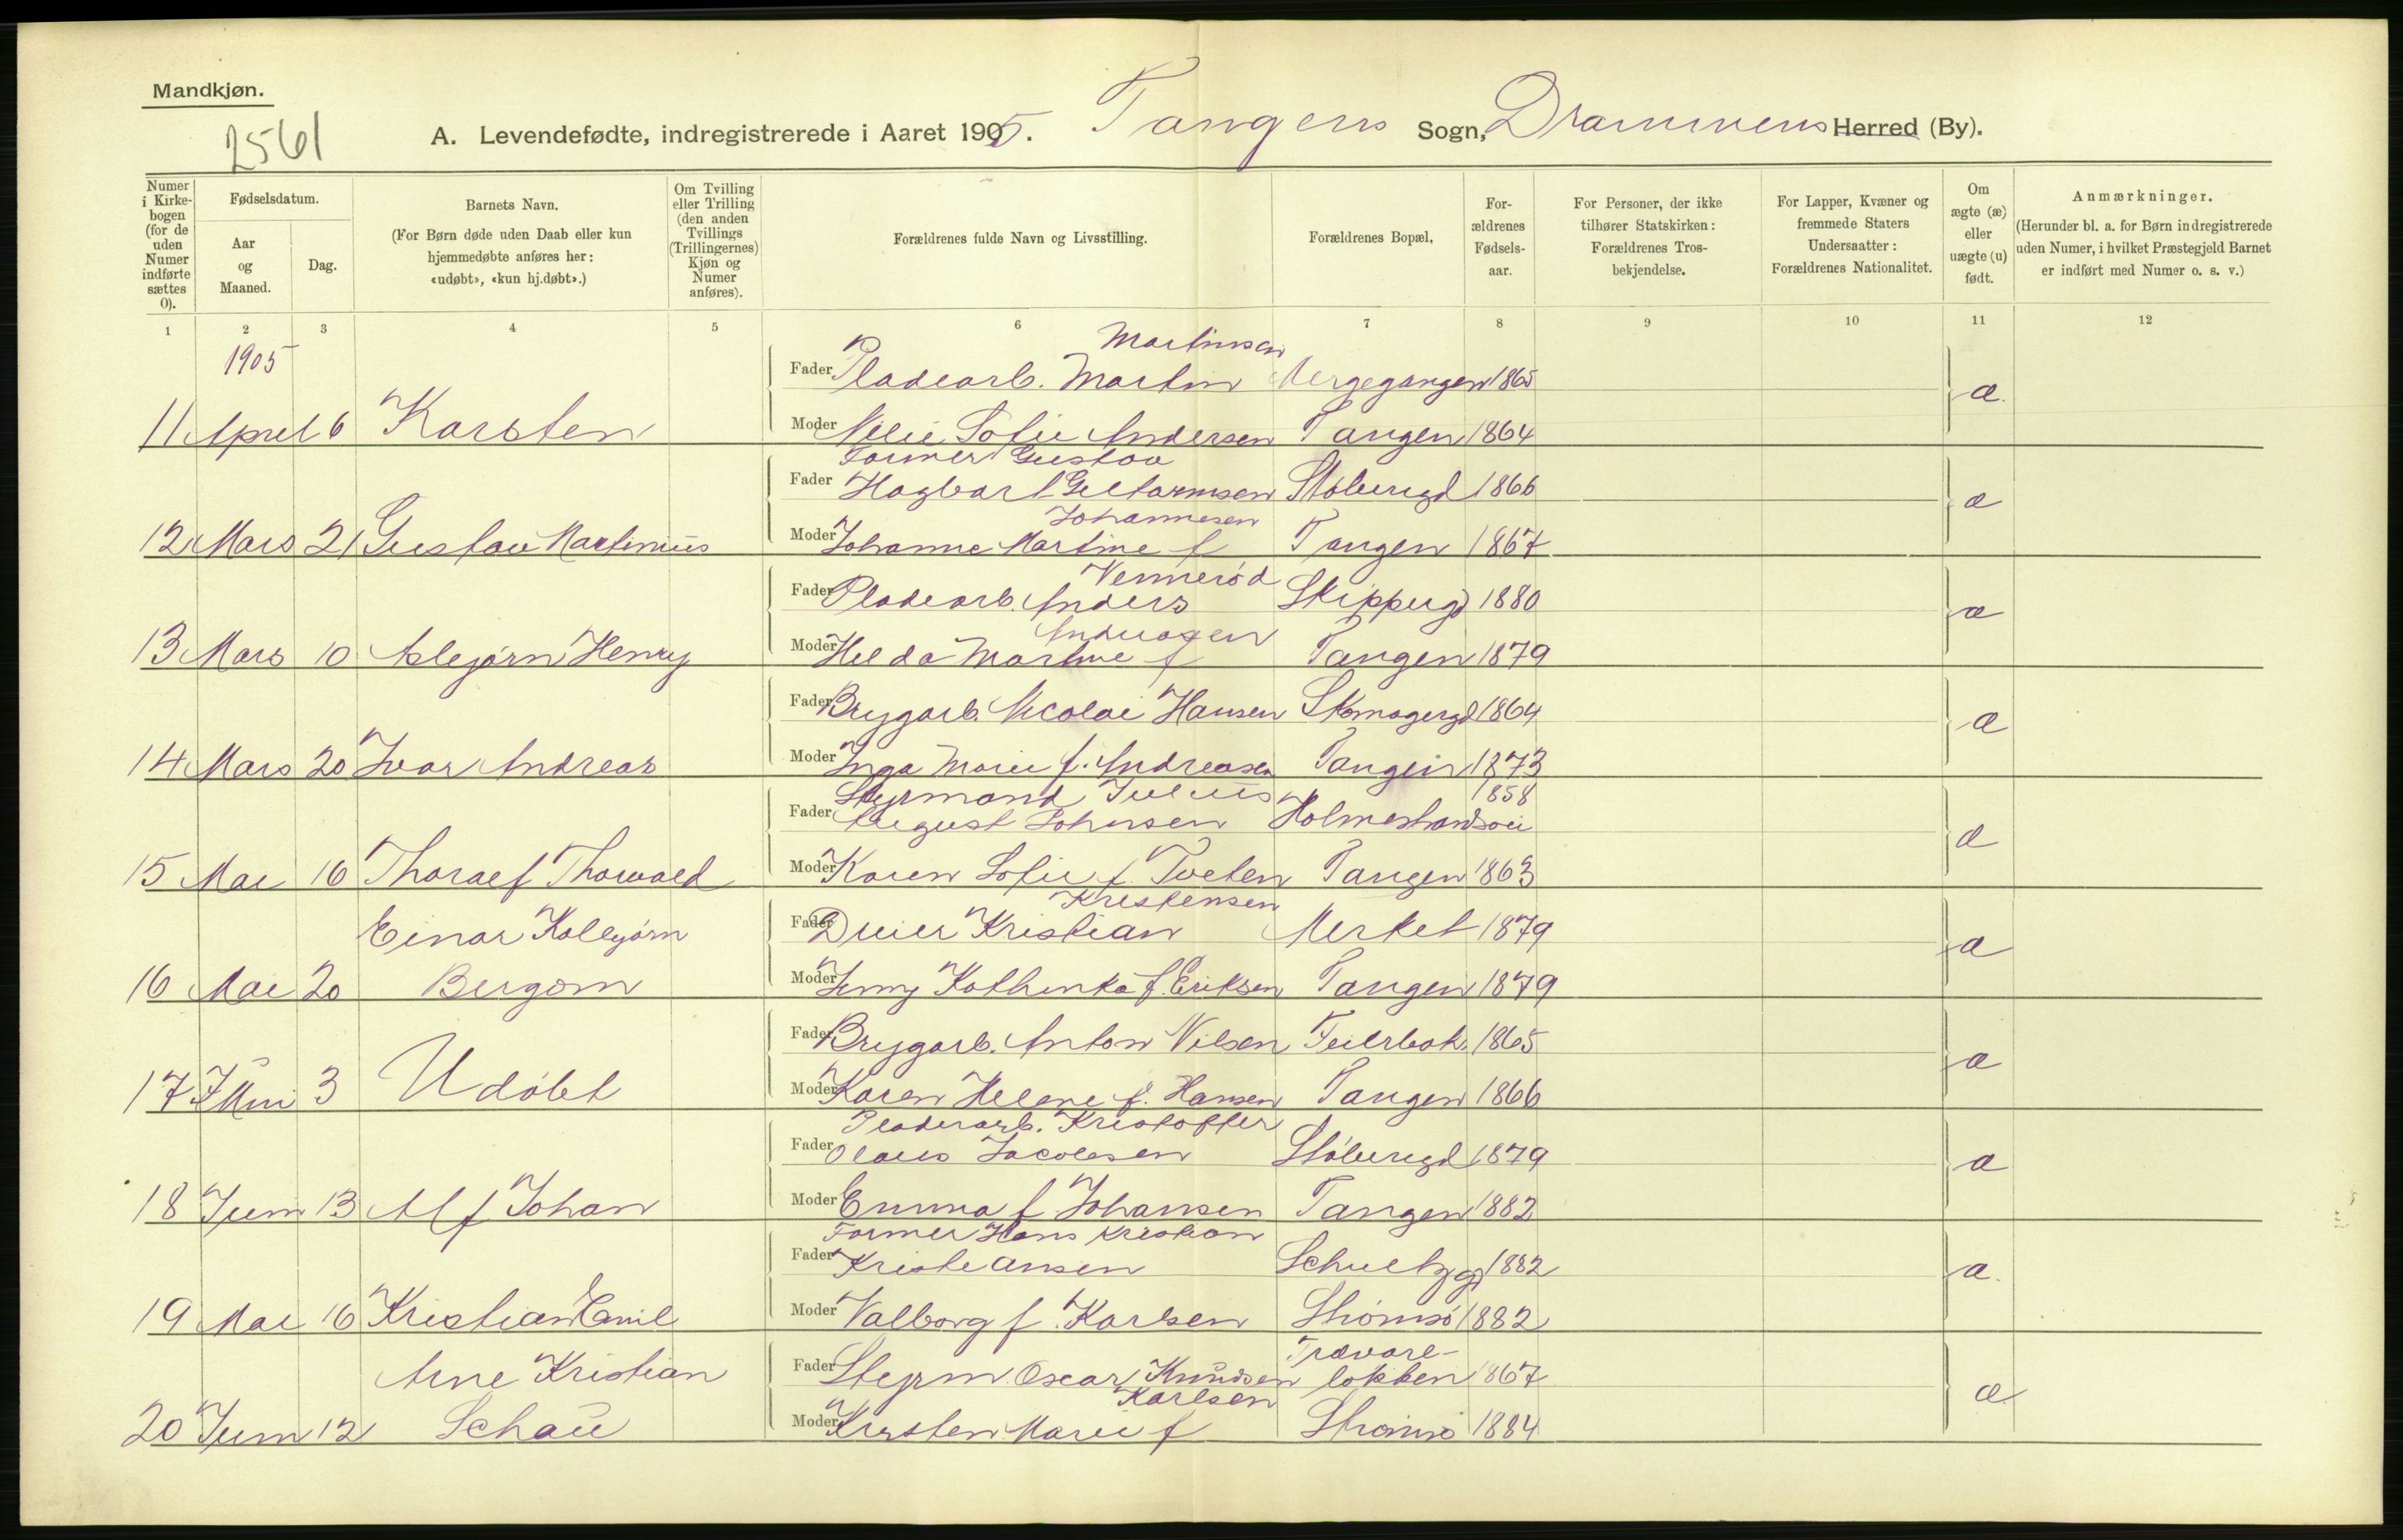 Mandkjøn.
2561
A. Levendefødte, indregistrerede i Aaret 1905. Tangens Sogn, Drammens Herred (By).
Numer i Kirkebogen (for de uden Numer indførte sættes 0).
Fødselsdatum.
Aar og Maaned.
Dag.
Barnets Navn.
(For Børn døde uden Daab eller kun hjemmedøbte anføres her: «udøbt», «kun hj.døbt».)
Om Tvilling eller Trilling (den anden Tvillings (Trillingernes) Kjøn og Numer anføres).
Forældrenes fulde Navn og Livsstilling.
Forældrenes Bopæl,
Forældrenes Fødselsaar.
For Personer, der ikke tilhører Statskirken: Forældrenes Trosbekjendelse.
For Lapper, Kvæner og fremmede Staters Undersaatter: Forældrenes Nationalitet.
Om ægte (æ) eller uægte (u) født.
Anmærkninger.
(Herunder bl. a. for Børn indregistrerede uden Numer, i hvilket Præstegjeld Barnet er indført med Numer o. s. v.)
1 2 3 4 5 6 7 8 9 10 11 12
1905
Martinsen
Fader Pladearb. Martin 1865
æ.
11 April 6 Karsten
Moder Sofie Andersen Tangen 1864
Former Gustav
Fader Hagbart Støberigd 1866
æ
Johannesen
12 Mars 21 Gustav Martinius
Moder Johanne Martine f Tangen 1867
Vennerød
Fader Pladearb. Anders Skipperg 1880
æ
13 Mars 10 Asbjørn Henry
Moder Hilda Martine f Tangen 1879
Fader Brygarb. Nicolai Hansen Skomagergd 1864
æ
14 Mars 20 Ivar Andreas
Moder Inga Marie f. Andreasen Tangen 1873
Styrmand Julius 1858
Fader August Johnsen Holmestrandsvei
æ
15 Mai 16 Thoralf Thorvald
Moder Karen Sofie f. Tveten Tangen 1863
Kristensen
Einar Kolbjørn
Fader Dreier Kristian Merket 1879
æ
16 Mai 20 Bergan
Moder Jenny Kathinka f. Eriksen Tangen 1879
Fader Brygarb. Anton Nilsen Teilrbak. 1865
æ
17 Juni 3 Udøbt
Moder Karen Helene f. Hansen Tangen 1866
Pladearb. Kristoffer
Fader Olaus Jacobsen Støberigd 1879
æ
18 Juni 13 Alf Johan
Moder Emma f Johansen Tangen 1882
Former Hans Kristian
Fader Kristiansen Schultzgd 1882
æ.
19 Mai 16 Kristian Emil
Moder Valborg f. Karlsen Strømsø 1882
Trævare-
Arne Kristian
Fader Styrm. Oscar Knudsen løkken 1867
æ
Karlsen
20 Juni 12 Schau
Moder Kirsten Marie f Strømsø 1884